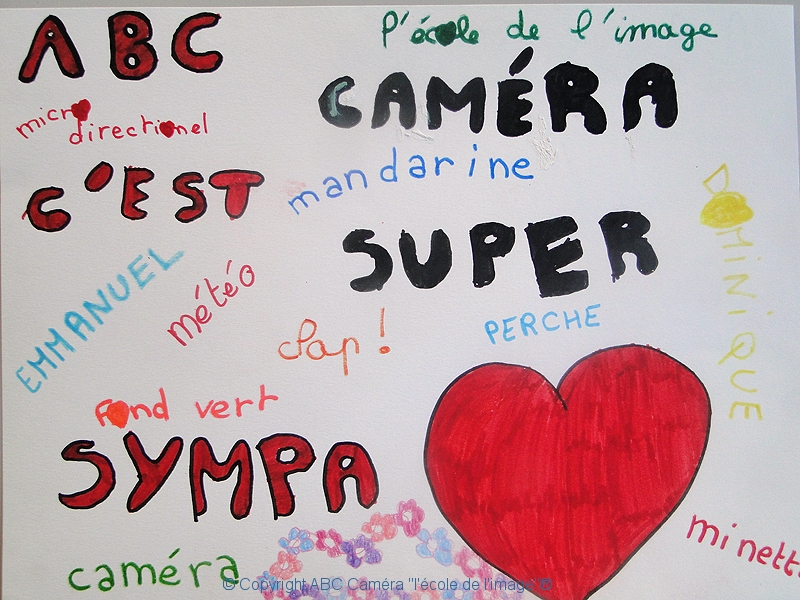 ABC
l'école de l'image
CAMÉRA
micro
directionel
mandarine
C'EST
SUPER
DOMINIQUE
EMMANUEL
météo
clap !
PERCHE
fond vert
SYMPA
minett
caméra
© Copyright ABC Caméra "l'école de l'image"